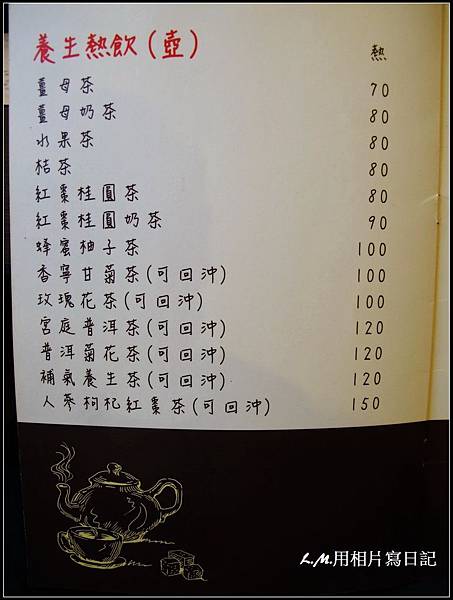 養生熱飲(壺) 熱
薑母茶 70
薑母奶茶 80
水果茶 80
桔茶 80
紅棗桂圓茶 80
紅棗桂圓奶茶 90
蜂蜜柚子茶 100
香寧甘菊茶(可回沖) 100
玫瑰花茶(可回沖) 100
宮庭普洱茶(可回沖) 120
普洱菊花茶(可回沖) 120
補氣養生茶(可回沖) 120
人蔘枸杞紅棗茶(可回沖) 150
L.M.用相片寫日記